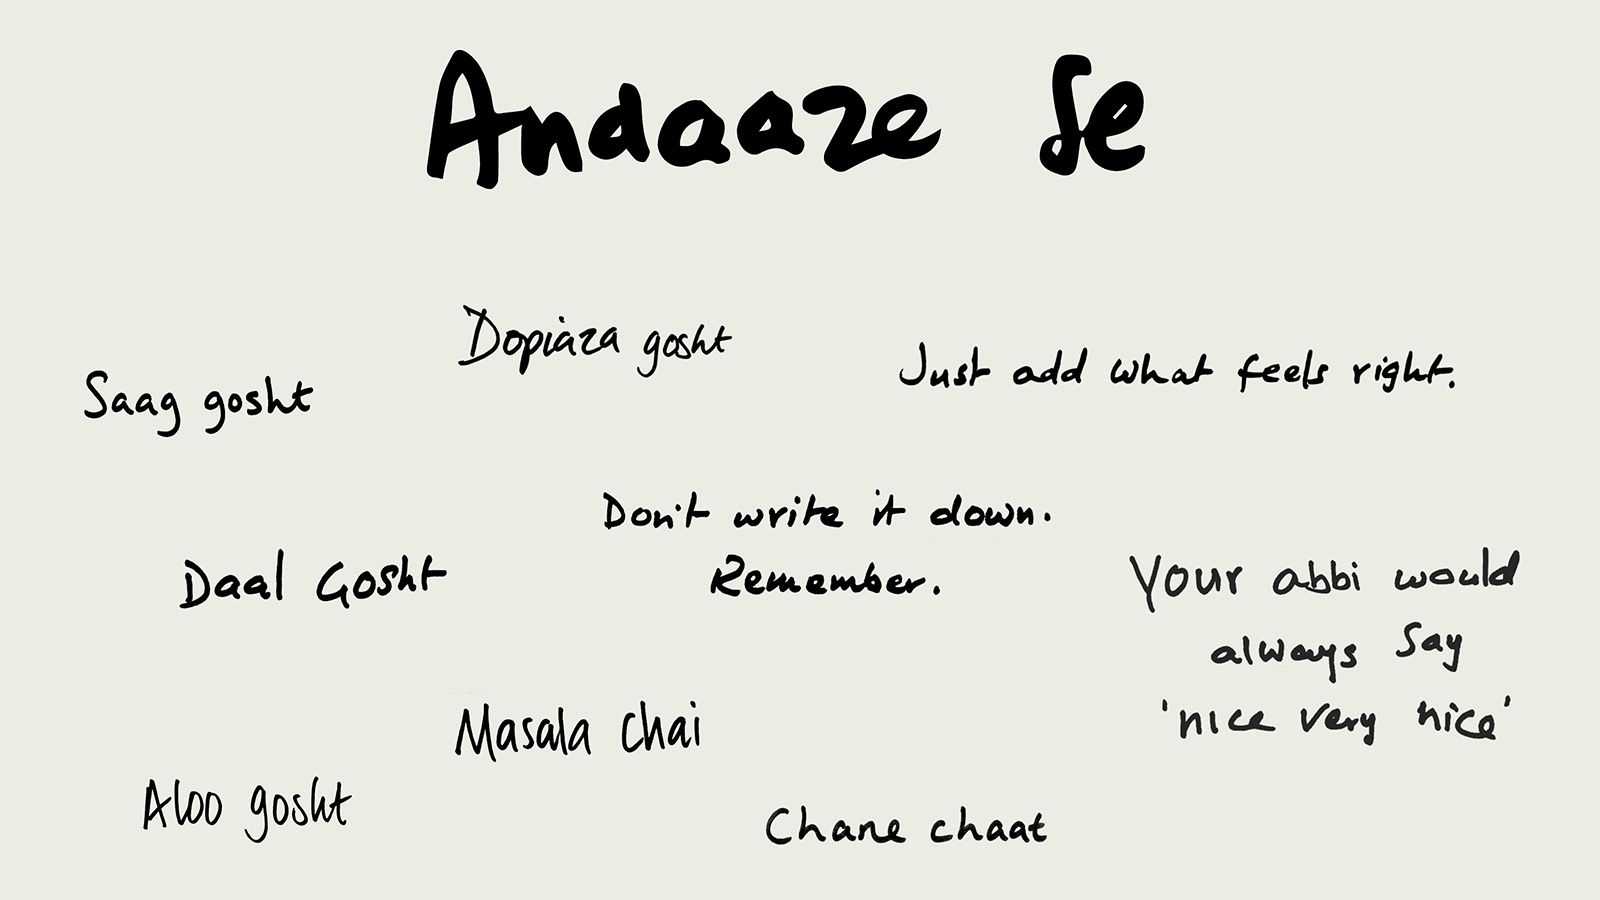 Andaaze Se
Dopiaza gosht
Just add what feels right.
Saag gosht
Don't write it down.
Remember.
Daal Gosht
Your abbi would
always say
'nice very nice'
Masala chai
Aloo gosht
Chane chaat